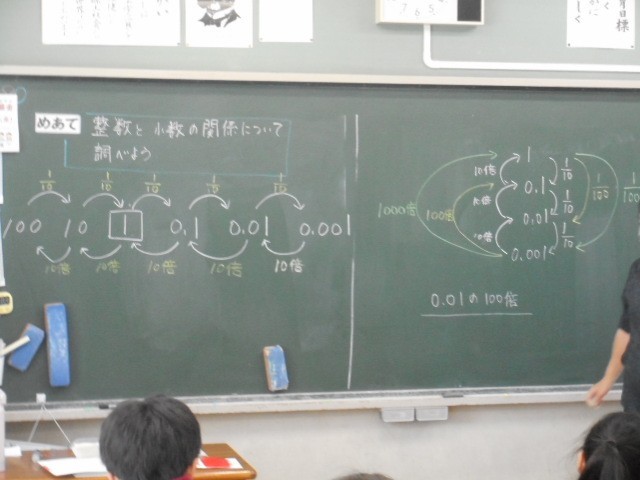 めあて 整数と小数の関係について
調べよう
1/10 1/10 1/10 1/10 1/10
100 10 1 0.1 0.01 0.001
10倍 10倍 10倍 10倍 10倍
1
10倍 1/10
0.1
10倍 1/10
0.01
10倍 1/10
0.001
1000倍 100倍
1/100
0.01の100倍